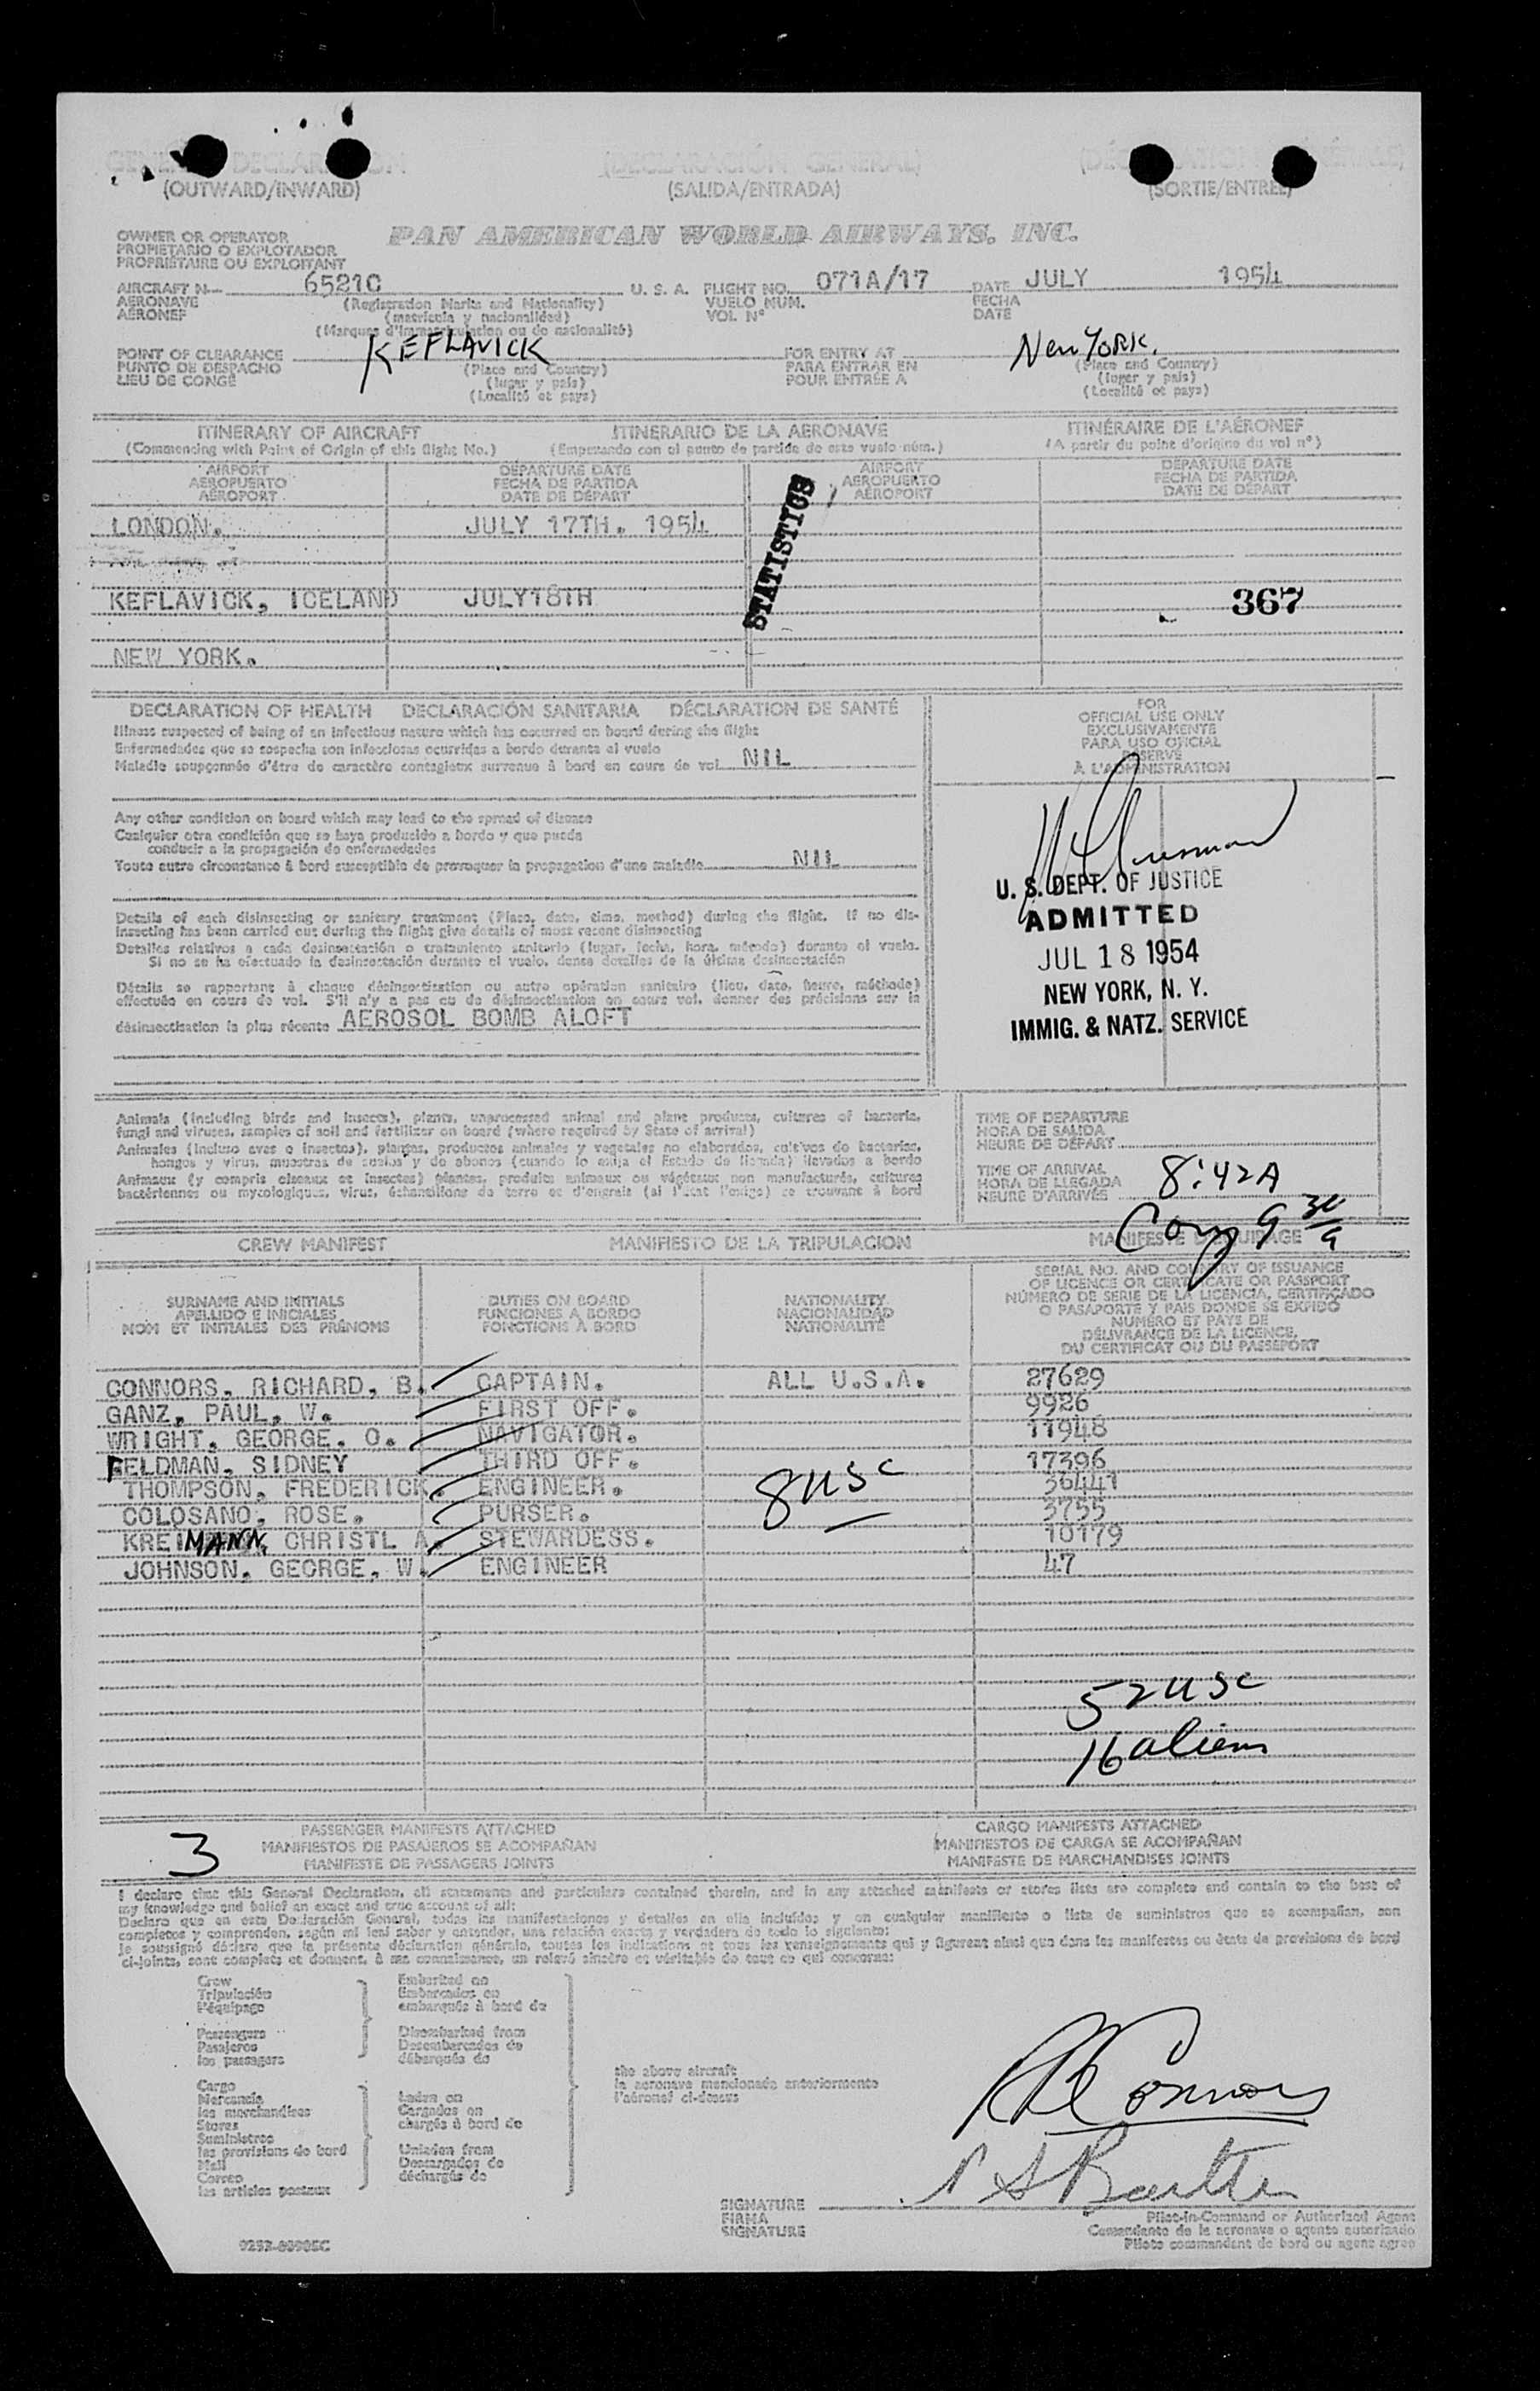 GENERAL DECLARATION (DECLARACIÓN GENERAL)
(OUTWARD/INWARD) (SALIDA/ENTRADA) (SORTIE/ENTRÉE)
OWNER OR OPERATOR PAN AMERICAN WORLD AIRWAYS, INC.
PROPIETARIO O EXPLOTADOR
PROPRIÉTAIRE OU EXPLOITANT
AIRCRAFT N- 65210 U. S. A. FLIGHT NO. 071A/17 DATE JULY 1954
AERONAVE (Registration Marks and Nationality) VUELO NUM. FECHA
AÉRONEF (matrícula y nacionalidad) VOL Nº DATE
(Marques d'immatriculation ou de nationalité)
POINT OF CLEARANCE KEFLAVICK FOR ENTRY AT New YORK.
PUNTO DE DESPACHO (Place and Country) PARA ENTRAR EN (Place and Country)
LIEU DE CONGÉ (lugar y país) POUR ENTRÉE A (lugar y país)
(Localité et pays) (Localité et pays)
ITINERARY OF AIRCRAFT ITINERARIO DE LA AERONAVE ITINÉRAIRE DE L'AÉRONEF
(Commencing with Point of Origin of this flight No.) (Empezando con el punto de partida de este vuelo núm.) (A partir du point d'origine du vol nº)
AIRPORT DEPARTURE DATE AIRPORT DEPARTURE DATE
AEROPUERTO FECHA DE PARTIDA AEROPUERTO FECHA DE PARTIDA
AÉROPORT DATE DE DÉPART AÉROPORT DATE DE DÉPART
STATISTICS
LONDON. JULY 17TH. 1954
KEFLAVICK, ICELAND JULY18TH 367
NEW YORK.
DECLARATION OF HEALTH DECLARACIÓN SANITARIA DÉCLARATION DE SANTÉ
Illness suspected of being of an infectious nature which has occurred on board during the flight
Enfermedades que se sospecha son infecciosas ocurridas a bordo durante el vuelo
Maladie soupçonnée d'être de caractère contagieux survenue à bord en cours de vol NIL
Any other condition on board which may lead to the spread of disease
Cualquier otra condición que se haya producido a bordo y que pueda
conducir a la propagación de enfermedades
Toute autre circonstance à bord susceptible de provoquer la propagation d'une maladie NIL
Details of each disinsecting or sanitary treatment (Place, date, time, method) during the flight. If no dis-
insecting has been carried out during the flight give details of most recent disinsecting
Detalles relativos a cada desinsectación o tratamiento sanitario (lugar, fecha, hora, método) durante el vuelo.
Si no se ha efectuado la desinsectación durante el vuelo, dense detalles de la última desinsectación
Détails se rapportant à chaque désinsectisation ou autre opération sanitaire (lieu, date, heure, méthode)
effectuée en cours de vol. S'il n'y a pas eu de désinsectisation en cours vol, donner des précisions sur la
désinsectisation la plus récente AEROSOL BOMB ALOFT
FOR
OFFICIAL USE ONLY
EXCLUSIVAMENTE
PARA USO OFICIAL
RÉSERVÉ
À L'ADMINISTRATION
U. S. DEPT. OF JUSTICE
ADMITTED
JUL 18 1954
NEW YORK, N. Y.
IMMIG. & NATZ. SERVICE
Animals (including birds and insects), plants, unprocessed animal and plant products, cultures of bacteria,
fungi and viruses, samples of soil and fertilizer on board (where required by State of arrival)
Animales (incluso aves o insectos), plantas, productos animales y vegetales no elaborados, cultivos de bacterias,
hongos y virus, muestras de suelos y de abonos (cuando lo exija el Estado de llegada) llevados a bordo
Animaux (y compris oiseaux et insectes) plantes, produits animaux ou végétaux non manufacturés, cultures
bactériennes ou mycologiques, virus, échantillons de terre et d'engrais (si l'état l'exige) se trouvant à bord
TIME OF DEPARTURE
HORA DE SALIDA
HEURE DE DÉPART
TIME OF ARRIVAL
HORA DE LLEGADA 8:42A
HEURE D'ARRIVÉE
CREW MANIFEST MANIFIESTO DE LA TRIPULACION MANIFESTE D'EQUIPAGE
SURNAME AND INITIALS DUTIES ON BOARD NATIONALITY SERIAL NO. AND COUNTRY OF ISSUANCE
APELLIDO E INICIALES FUNCIONES A BORDO NACIONALIDAD OF LICENCE OR CERTIFICATE OR PASSPORT
NOM ET INITIALES DES PRÉNOMS FONCTIONS À BORD NATIONALITÉ NÚMERO DE SERIE DE LA LICENCIA, CERTIFICADO
O PASAPORTE Y PAIS DONDE SE EXPIDÓ
NUMÉRO ET PAYS DE
DÉLIVRANCE DE LA LICENCE,
DU CERTIFICAT OU DU PASSEPORT
CONNORS, RICHARD, B. CAPTAIN. ALL U.S.A. 27629
GANZ, PAUL, W. FIRST OFF. 9926
WRIGHT, GEORGE, O. NAVIGATOR. 11948
FELDMAN, SIDNEY THIRD OFF. 17396
THOMPSON, FREDERICK. ENGINEER. 36441
COLOSANO, ROSE. PURSER. 8 USC 3755
KREIMANN, CHRISTL A. STEWARDESS. 10179
JOHNSON, GEORGE, W. ENGINEER 47
52 USC
16 aliens
3 PASSENGER MANIFESTS ATTACHED CARGO MANIFESTS ATTACHED
MANIFIESTOS DE PASAJEROS SE ACOMPAÑAN MANIFIESTOS DE CARGA SE ACOMPAÑAN
MANIFESTE DE PASSAGERS JOINTS MANIFESTE DE MARCHANDISES JOINTS
I declare that this General Declaration, all statements and particulars contained therein, and in any attached manifests or stores lists are complete and contain to the best of
my knowledge and belief an exact and true account of all:
Declaro que en esta Declaración General, todas las manifestaciones y detalles en ella incluídos y en cualquier manifiesto o lista de suministros que se acompañan, son
completos y comprenden, según mi leal saber y entender, una relación exacta y verdadera de todo lo siguiente:
Je soussigné déclare que la présente déclaration générale, toutes les indications et tous les renseignements qui y figurent ainsi que dans les manifestes ou états de provisions de bord
ci-joints, sont complets et donnent, à ma connaissance, un relevé sincère et véritable de tout ce qui concerne:
Crew Embarked on
Tripulación Embarcados en
l'équipage embarqués à bord de
Passengers Disembarked from
Pasajeros Desembarcados de
les passagers débarqués de
the above aircraft
la aeronave mencionada anteriormente
l'aéronef ci-dessus
Cargo
Mercancía Laden on
les marchandises Cargados en
Stores chargés à bord de
Suministros
les provisions de bord Unladen from
Mail Descargados de
Correo déchargés de
les articles postaux
RB Connors
SIGNATURE
FIRMA Pilot-in-Command or Authorized Agent
SIGNATURE Comandante de la aeronave o agente autorizado
Pilote commandant de bord ou agent agréé